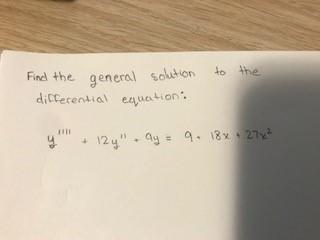 Find the general solution to the
differential equation:
y'''' + 12y'' + 9y = 9 + 18x + 27x²